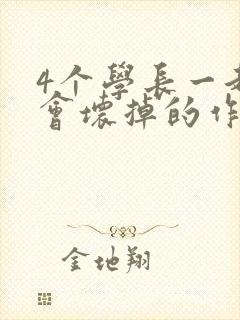 4个學長一
會壞掉的作
金地翔